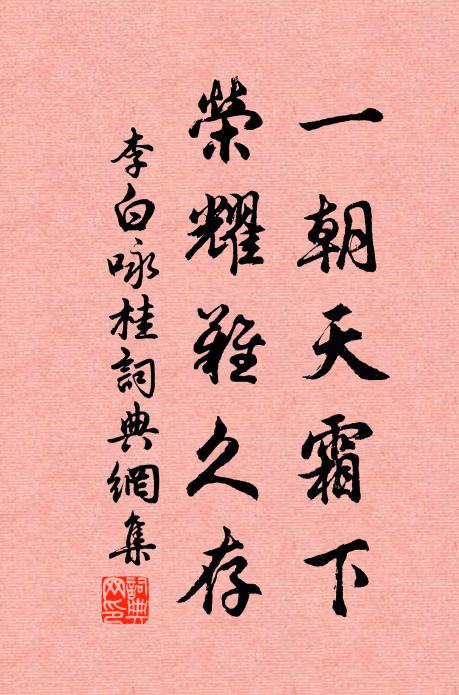 一朝天霜下
榮耀難久存
李白咏桂詞典網集
詞典网印